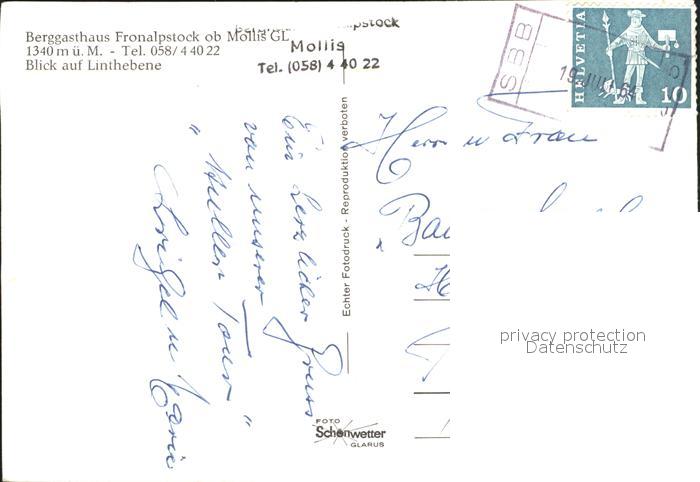 Berggasthaus Fronalpstock ob Mollis GL
1340 m ü. M. - Tel. 058/4 40 22
Blick auf Linthebene
Mollis
Tel. (058) 4 40 22
SBB
HELVETIA
10
Echter Fotodruck - Reproduktion verboten
Ein herzlicher Gruss
von unserer
" Tour "
Herr u Frau
FOTO
Schönwetter
GLARUS
privacy protection
Datenschutz